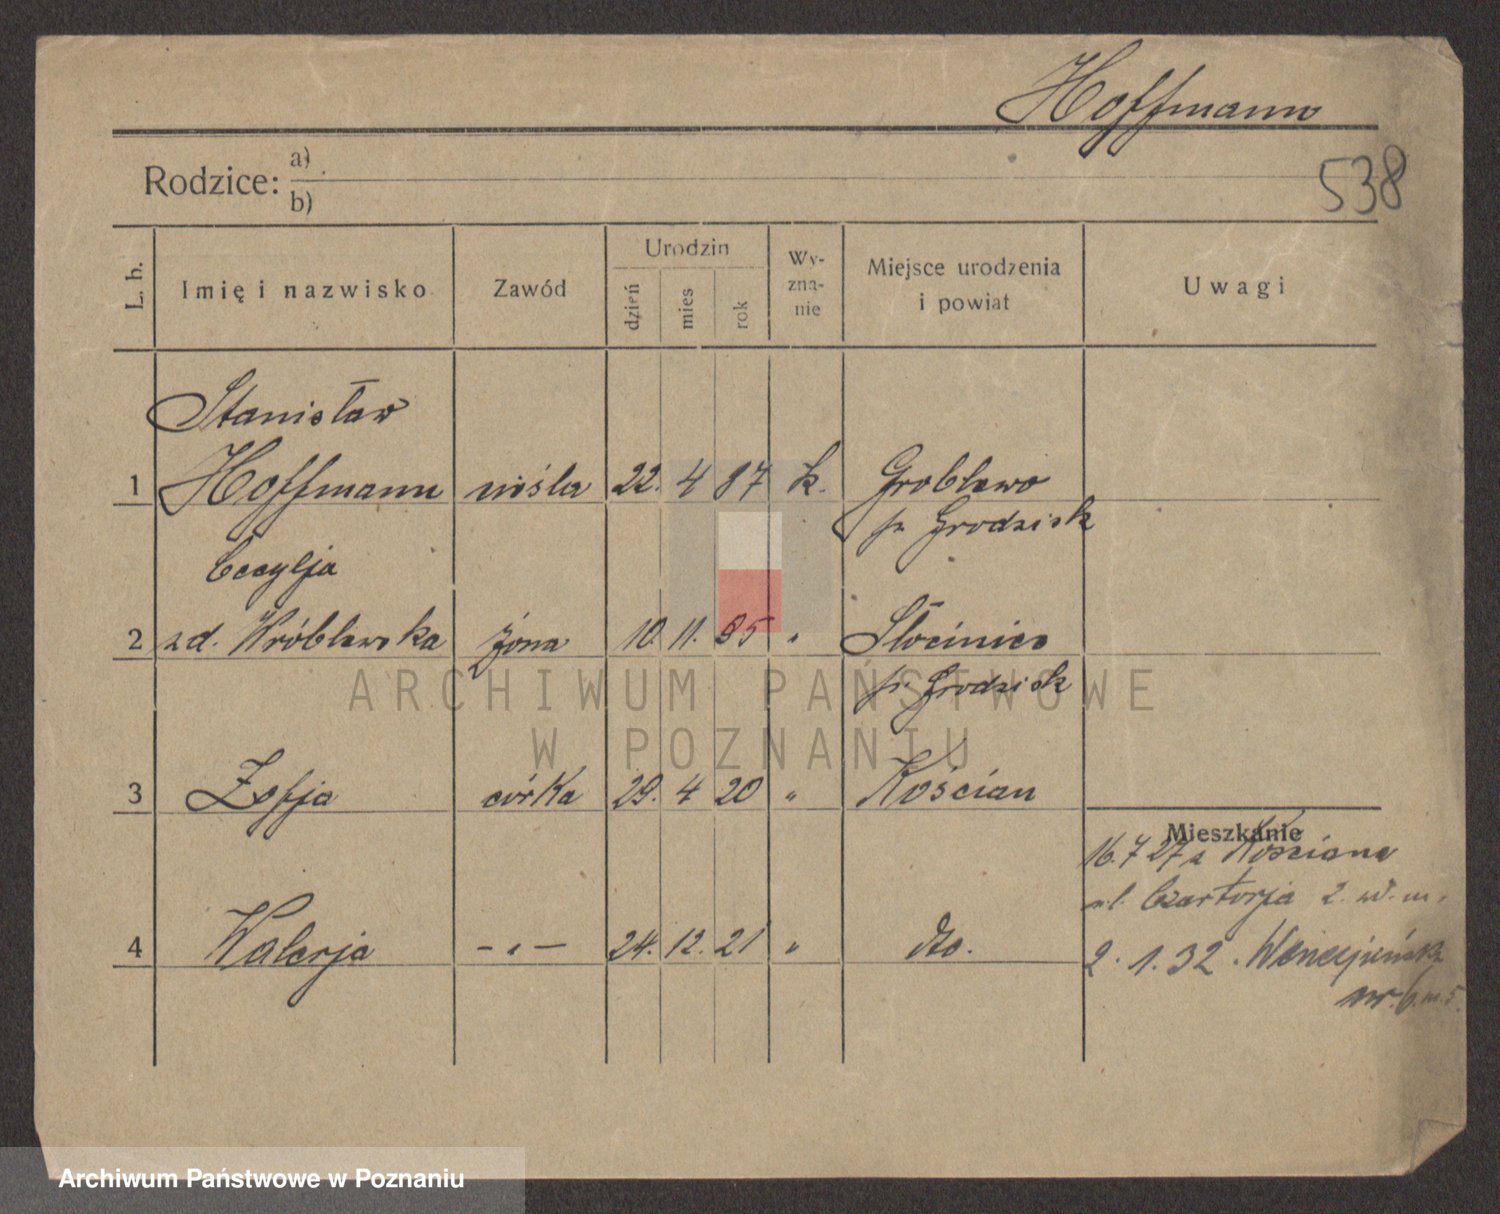 Hoffmann
538
Rodzice: a)
b)
L. b.
Imię i nazwisko
Zawód
Urodzin
dzień
mies
rok
Wy-
zna-
nie
Miejsce urodzenia
i powiat
Uwagi
Stanisław
1 Hoffmann cieśla 22. 4 87 k. Groblewo
p. Grodzisk
Cecylja
2 z d. Wróblewska żona 10. 11. 85 " Słocinice
p. Grodzisk
3 Zofja córka 29. 4 20 " Kościan
Mieszkanie
16.7 27 z Kościana
ul. Czartorja 2.
4 Walerja - " - 24. 12. 21 " dto.
2. 1. 32. Wenecjańska
nr. 6. m. 5.
ARCHIWUM PAŃSTWOWE
W POZNANIU
Archiwum Państwowe w Poznaniu